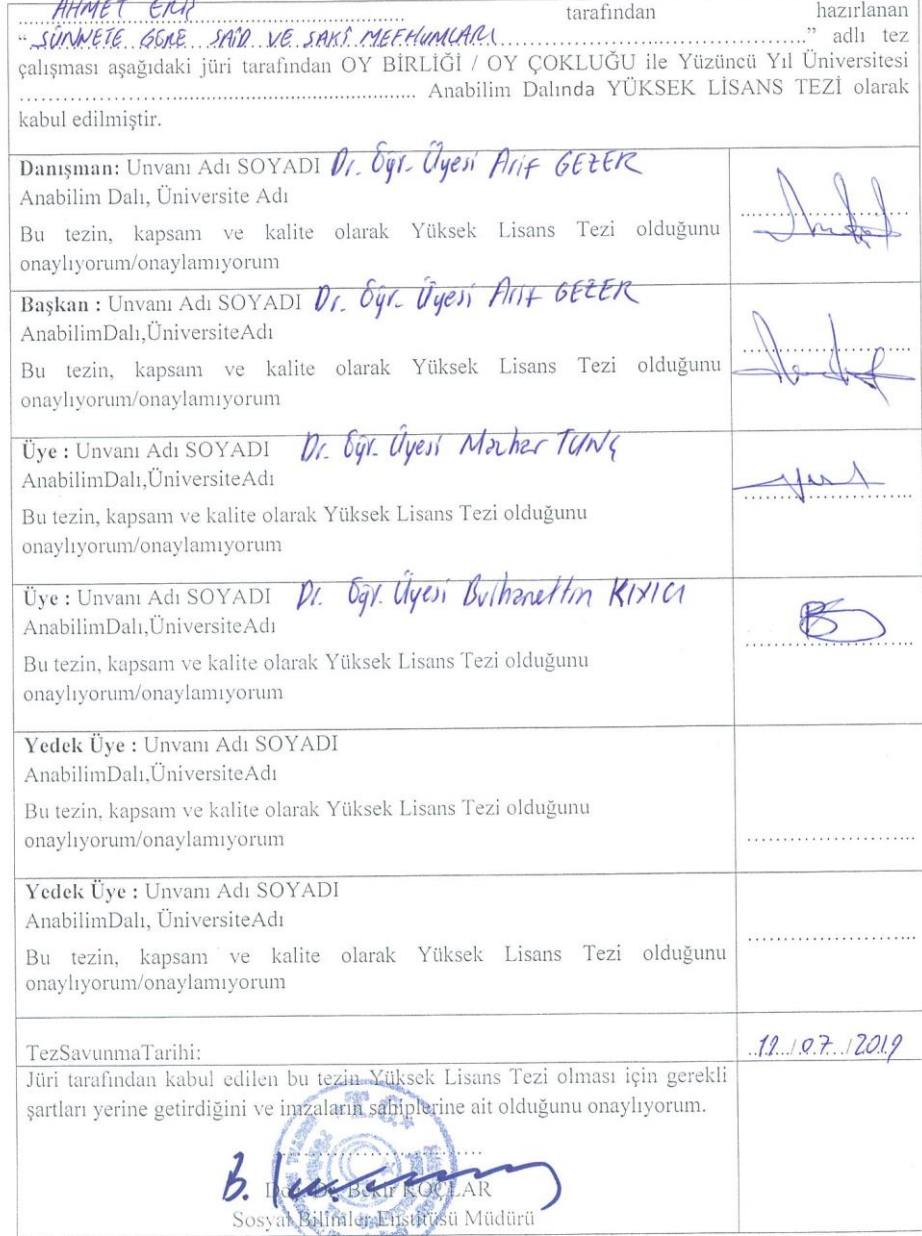 AHMET ERİR tarafından hazırlanan
"SÜNNETE GÖRE SAİD VE ŞAKİ MEFHUMLARI" adlı tez
çalışması aşağıdaki jüri tarafından OY BİRLİĞİ / OY ÇOKLUĞU ile Yüzüncü Yıl Üniversitesi
Anabilim Dalında YÜKSEK LİSANS TEZİ olarak
kabul edilmiştir.
Danışman: Unvanı Adı SOYADI Dr. Öğr. Üyesi Arif GEZER
Anabilim Dalı, Üniversite Adı
Bu tezin, kapsam ve kalite olarak Yüksek Lisans Tezi olduğunu
onaylıyorum/onaylamıyorum
Başkan : Unvanı Adı SOYADI Dr. Öğr. Üyesi Arif GEZER
AnabilimDalı,ÜniversiteAdı
Bu tezin, kapsam ve kalite olarak Yüksek Lisans Tezi olduğunu
onaylıyorum/onaylamıyorum
Üye : Unvanı Adı SOYADI Dr. Öğr. Üyesi Mazhar TUNÇ
AnabilimDalı,ÜniversiteAdı
Bu tezin, kapsam ve kalite olarak Yüksek Lisans Tezi olduğunu
onaylıyorum/onaylamıyorum
Üye : Unvanı Adı SOYADI Dr. Öğr. Üyesi Burhanettin KIYICI
AnabilimDalı,ÜniversiteAdı
Bu tezin, kapsam ve kalite olarak Yüksek Lisans Tezi olduğunu
onaylıyorum/onaylamıyorum
Yedek Üye : Unvanı Adı SOYADI
AnabilimDalı,ÜniversiteAdı
Bu tezin, kapsam ve kalite olarak Yüksek Lisans Tezi olduğunu
onaylıyorum/onaylamıyorum
Yedek Üye : Unvanı Adı SOYADI
AnabilimDalı, ÜniversiteAdı
Bu tezin, kapsam ve kalite olarak Yüksek Lisans Tezi olduğunu
onaylıyorum/onaylamıyorum
TezSavunmaTarihi: 12/07/2019
Jüri tarafından kabul edilen bu tezin Yüksek Lisans Tezi olması için gerekli
şartları yerine getirdiğini ve imzaların sahiplerine ait olduğunu onaylıyorum.
T.C.
Doç. Dr. Bekir KOÇLAR
Sosyal Bilimler Enstitüsü Müdürü